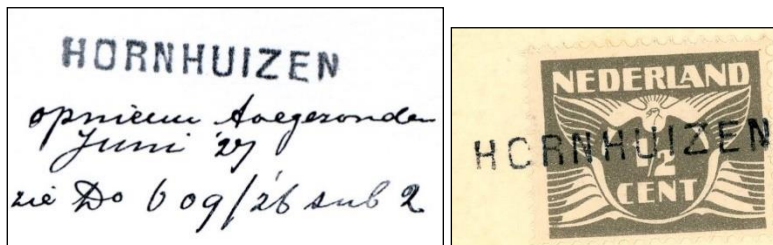 HORNHUIZEN
opnieuw toegezonden
Juni '27
zie Do 609/26 sub 2
NEDERLAND
HORNHUIZEN
1/2
CENT